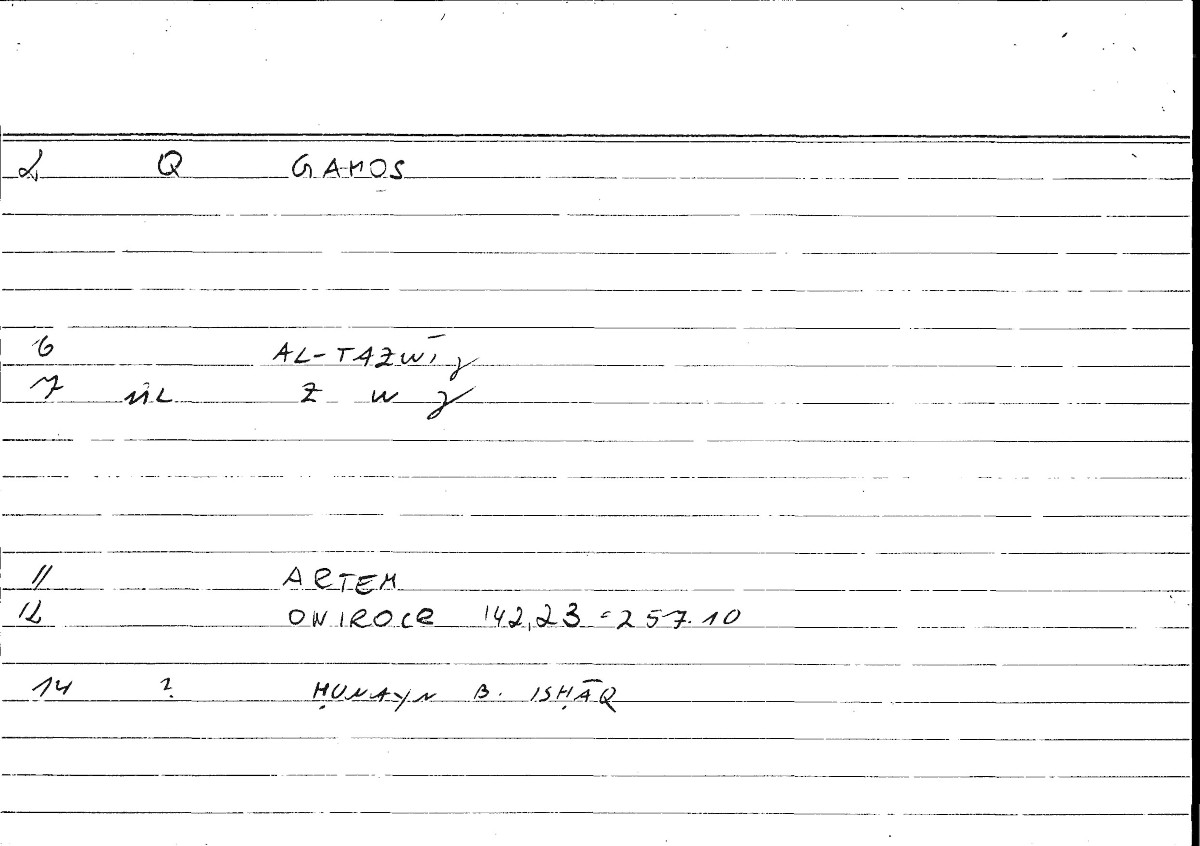 2 Q GAMOS
6 AL-TAZWĪJ
7 IIL Z W J
11 ARTEM
12 ONIROCR 142,23 = 257.10
14 ? ḤUNAYN B. ISḤĀQ